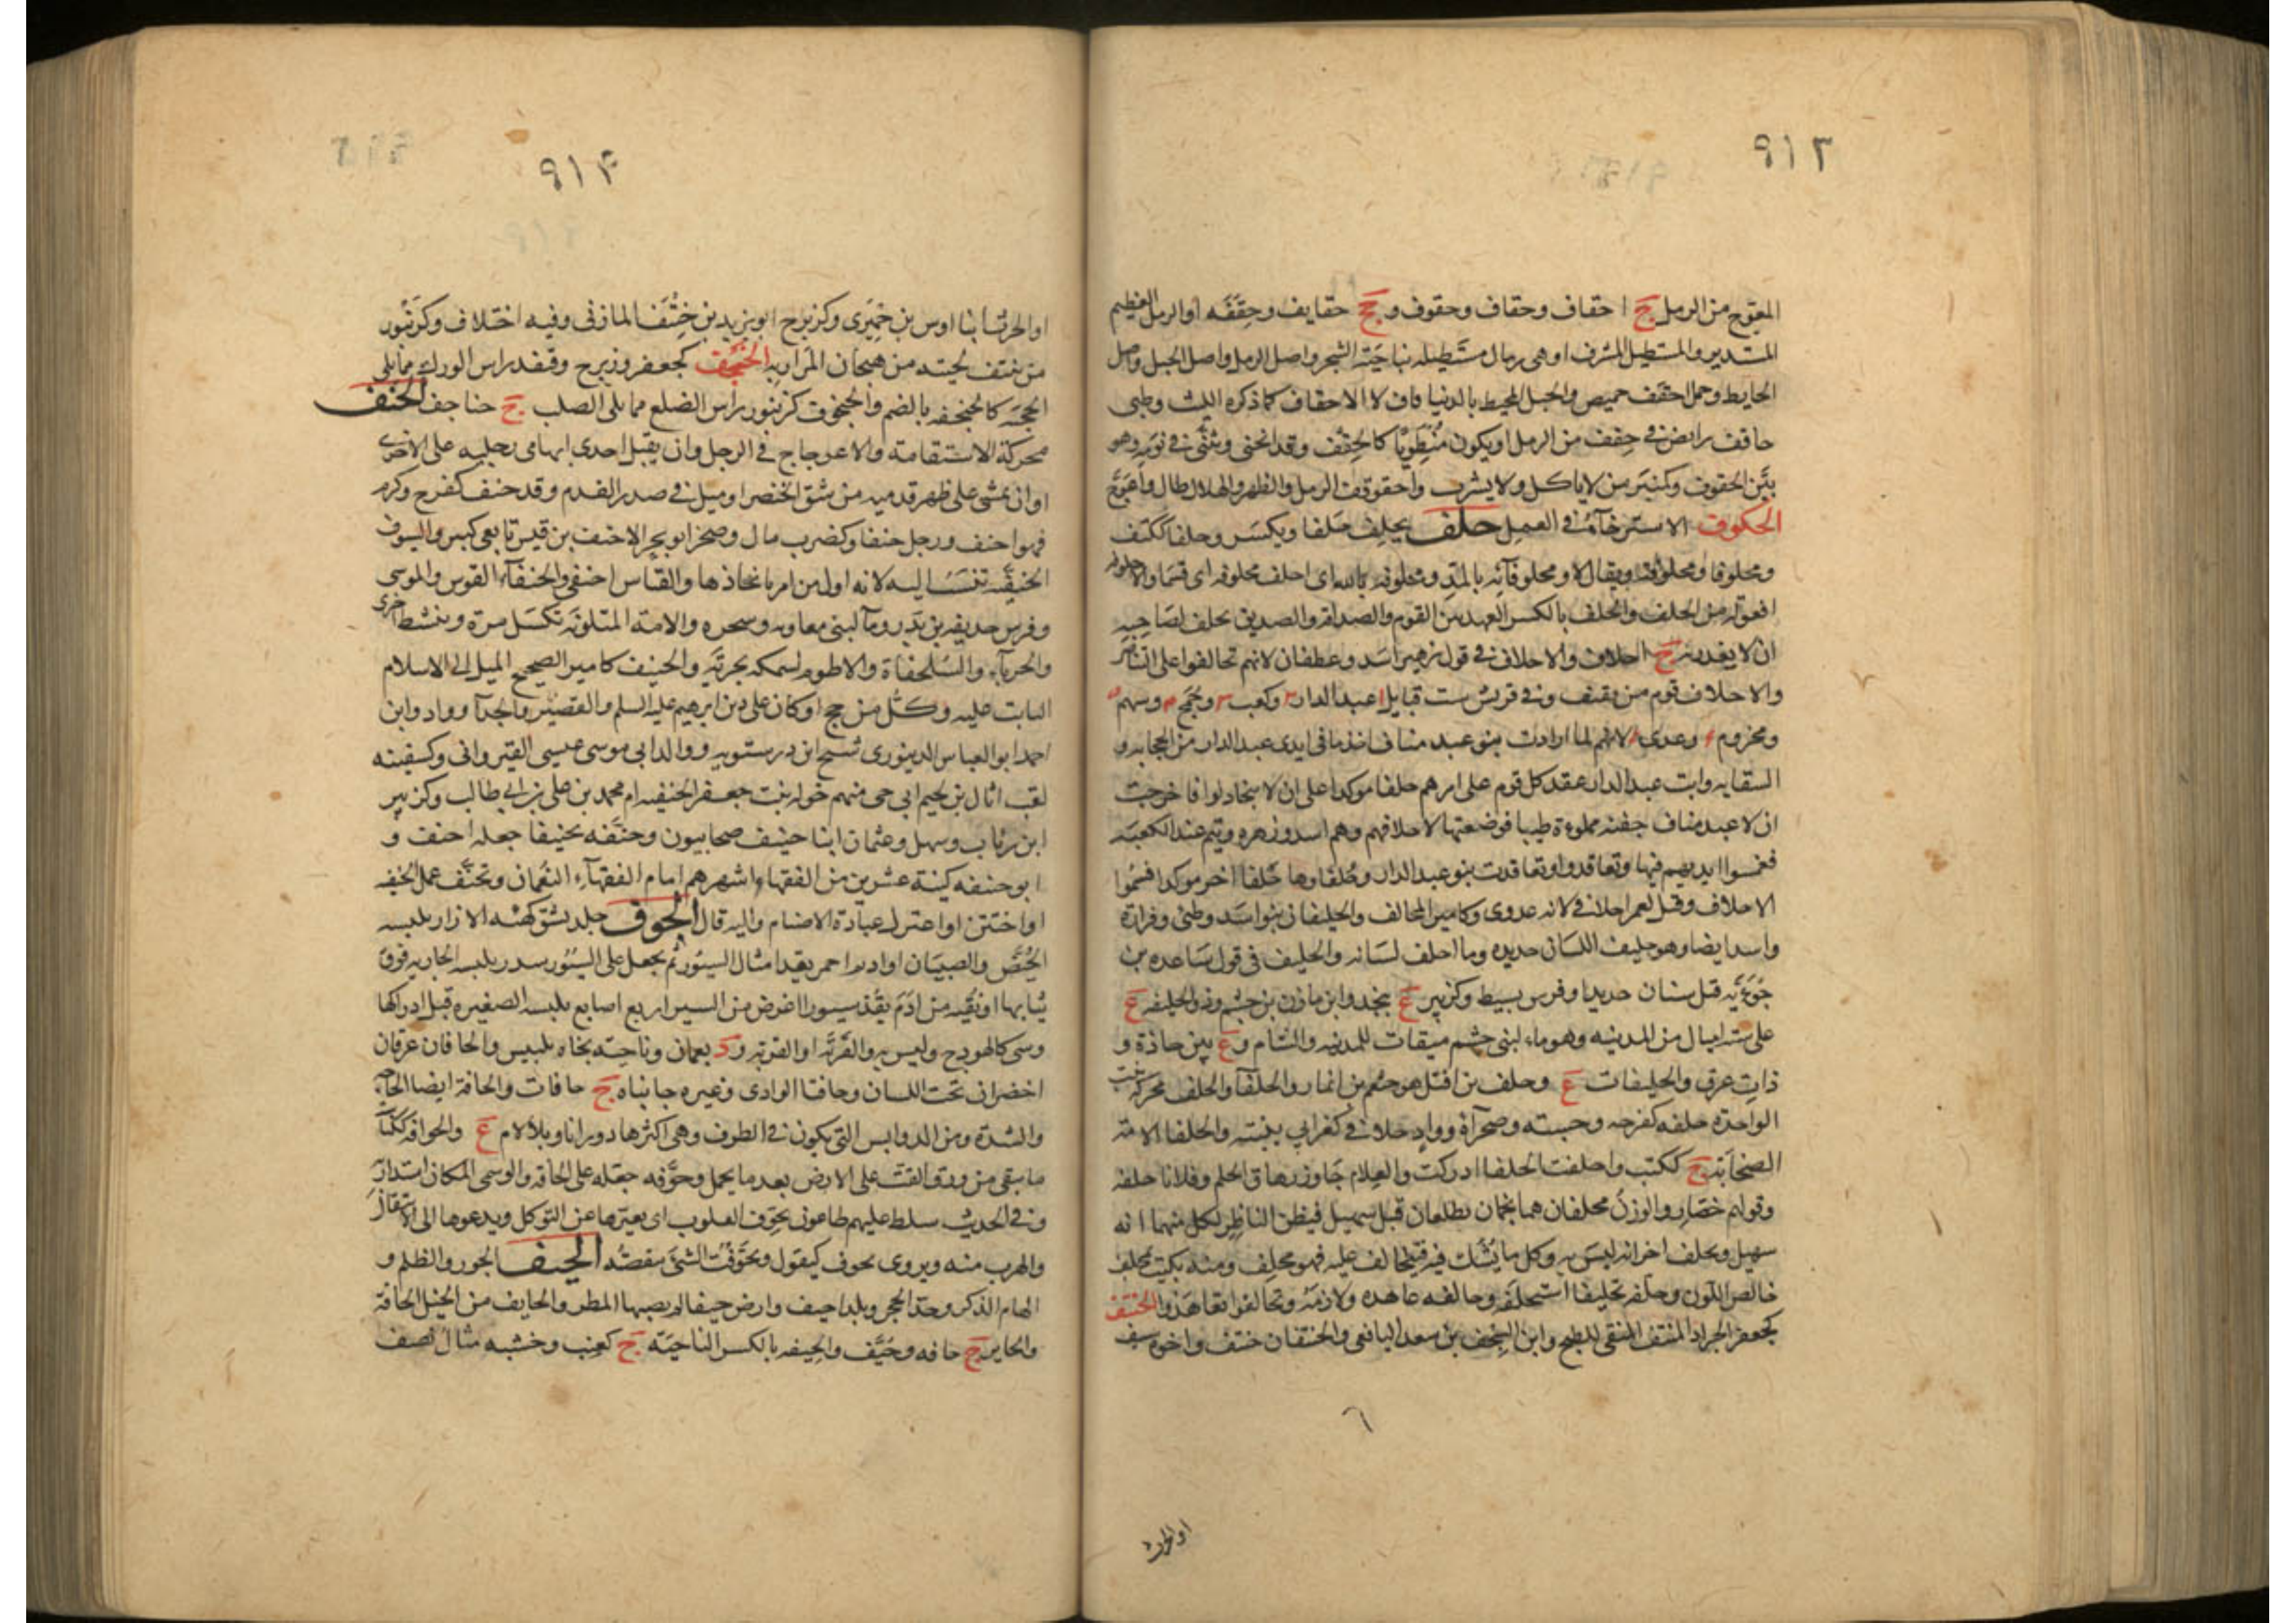 ٩١٣
المعوج من الرمل ج احقاف وحقاف وحقوف و جج حقايف وحققه او الرمل العظيم
المستدير والمستطيل المشرف او هى رمال مستطيله بناحية الشحر واصل الرمل واصل الجبل واصل
الحايط وجمل احقف خميص والجبل المحيط بالدنيا قاف لا الاحقاف كما ذكره الليث وظبى
حاقف رابض فى حقف من الرمل او يكون منطويا كالحقف وقد انحنى وتثنى فى نومه وهو
بين الحقوف وكمنبر من لا ياكل ولا يشرب واحقوقف الرمل والظهر والهلال طال واعوج
الحكوف الاسترخاء فى العمل حلف يحلف حلفا ويكسر وحلفا ككتف
ومحلوفا ومحلوفة ويقال لا ومحلوفائه بالمد ومحلوفة بالله اى احلف محلوفه اى قسما والاحلوفه
افعوله من الحلف والحلف بالكسر العهد بين القوم والصداقة والصديق يحلف لصاحبه
ان لا يغدر به ج احلاف والاحلاف فى قول زهير اسد وغطفان لانهم تحالفوا على التناصر
والاحلاف قوم من ثقيف وفى قريش ست قبايل عبد الدار وكعب وجمح وسهم
ومخزوم وعدى لانهم لما ارادت بنو عبد مناف اخذ ما فى ايدى عبد الدار من الحجابه و
السقايه وابت عبد الدار عقد كل قوم على امرهم حلفا موكدا على ان لا يتخاذلوا فاخرجت
عبد مناف جفنه مملوءة طيبا فوضعتها لاحلافهم وهم اسد وزهره وتيم عند الكعبه
فغمسوا ايديهم فيها وتعاقدوا وتعاقدت بنو عبد الدار وحلفاوها حلفا اخر موكدا فسموا
الاحلاف وقيل لعمر احلافى لانه عدوى وكامير المحالف والحليفان بنو اسد وطئ وفزارة
واسد ايضا وهو حليف اللسان حديده وما احلف لسانه والحليف فى قول ساعده بن
جؤية قيل سنان حديد او فرس بسيط وكزبير ع بنجد وابن مازن بن جشم وذو الحليفه ع
على سته اميال من المدينه وهو ماء لبنى جشم ميقات للمدينه والشام و ع بين حاذة و
ذات عرق والحليفات ع وحلف بن افتل هو خثعم بن انمار والحلفاء والحلف محركة نبت
الواحدة حلفه كفرحه وخشبه وصحرآة وواد حلافى كغرابى ينبته والحلفا الامة
الصخابة ج ككتب واحلفت الحلفا ادركت والغلام جاوز رهاق الحلم وفلانا حلفه
وقولهم حضار والوزن محلفان هما نجمان يطلعان قبل سهيل فيظن الناظر لكل منهما انه
سهيل ويحلف اخر انه ليس به وكل ما يشك فيه فيتحالف عليه فهو محلف ومنه كميت محلف
خالص اللون وحلفه تحليفا استحلفه وحالفه عاهده ولازمه وتحالفوا تعاهدوا الحنتف
كجعفر الجراد المنتف المنقى للطبخ وابن السجف بن سعد اليافعى والحنتفان حنتف واخوه سيف
او الحرث
٩١۴
او الحرث ابنا اوس بن حميرى وكزبرج ابو يزيد بن حنتف المازنى وفيه اختلاف وكزنبور
من ينتف لحيته من هيجان المرار به الحنجف كجعفر وزبرج وقنفد راس الورك مما يلى
الحجبه كالحنجفه بالضم والحنجوف كزنبور راس الضلع مما يلى الصلب ج حناجف الحنف
محركة الاستقامة والاعوجاج فى الرجل وان يقبل احدى ابهامى رجليه على الاخرى
او ان يمشى على ظهر قدميه من شق الخنصر او ميل فى صدر القدم وقد حنف كفرح وكرم
فهو احنف ورجل حنفا وكضرب مال وصخر ابو بحر الاحنف بن قيس تابعى كبير والسيوف
الحنيفيه تنسب اليه لانه اول من امر باتخاذها والقياس احنفى والحنفآء القوس والموسى
وفرس حذيفه بن بدر وماء لبنى معاويه وشجره والامة المتلونة تكسل مرة وتنشط اخرى
والحربآء والسلحفاة والاطوم لسمكه بحرية والحنيف كامير الصحيح الميل الى الاسلام
الثابت عليه وكل من حج او كان على دين ابرهيم عليه السلم والقصير والحذآ وواد وابن
احمد ابو العباس الدينورى شيخ ابن درستويه ووالد ابى موسى عيسى القيروانى وكسفينه
لقب اثال بن لجيم ابى حى منهم خوله بنت جعفر الحنفيه ام محمد بن على بن ابى طالب وكزبير
ابن رئاب وسهل وعثمان ابنا حنيف صحابيون وحنفه تحنيفا جعله احنف و
ابو حنيفه كنية عشرين من الفقهاء اشهرهم امام الفقهآء النعمان وتحنف عمل الحنيفيه
او اختتن او اعتزل عبادة الاصنام واليه قال الحوف جلد يشق كهيئه الازار يلبسه
الحيض والصبيان او اديم احمر يقد امثال السيور ثم يجعل على السيور شذر يلبسه الجاريه فوق
ثيابها او نقبه من ادم يقد سيورا عرض من السير اربع اصابع يلبسه الصغيره قبل ادراكها
وشى كالهودج وليس به والقرية او القربه ود بعمان وناحية تجاه بلبيس والحافان عرقان
اخضران تحت اللسان وحافتا الوادى وغيره جانباه ج حافات والحافة ايضا الحاجه
والشدة ومن الدوابس التى يكون فى الطرف وهى اكثرها دورانا وبلا لام ع والحوافه ككناسه
ما بقى من ورق القت على الارض بعد ما يحمل وحوفه جعله على الحافه والوسمى المكان استدار به
وفى الحديث سلط عليهم طاعون يحوف القلوب اى يغيرها عن التوكل ويدعوها الى الانتقال
والهرب منه ويروى يحوف كيقول وتحوفت الشئ تنقصته الحيف الجور والظلم و
الهام الذكر وحد الحجر وبلد احيف وارض حيفا لم يصبها المطر والحايف من الجبل الحافة
والحاير ج حافه وحيف والحيفه بالكسر الناحية ج كعنب وخشبه مثال نصف